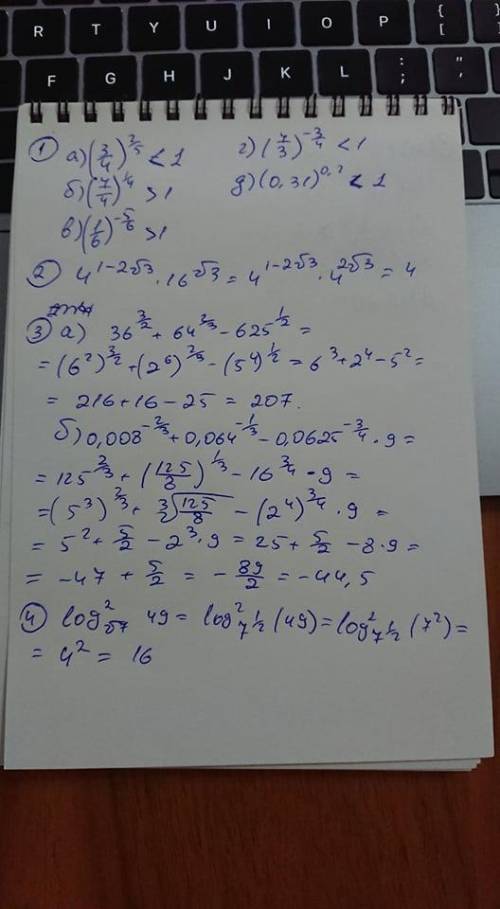 R T Y U I O P { [
F G H J K L : ; " '
① а) (3/4)^(2/5) < 1   г) (7/3)^(-3/4) < 1
б) (7/4)^(1/4) > 1   д) (0,31)^(0,7) < 1
в) (1/6)^(-5/6) > 1
② 4^(1-2√3) · 16^(√3) = 4^(1-2√3) · 4^(2√3) = 4
③ а) 36^(3/2) + 64^(2/3) - 625^(1/2) =
= (6²)^(3/2) + (2⁶)^(2/3) - (5⁴)^(1/2) = 6³ + 2⁴ - 5² =
= 216 + 16 - 25 = 207.
б) 0,008^(-2/3) + 0,064^(-1/3) - 0,0625^(-3/4) · 9 =
= 125^(2/3) + (125/8)^(1/3) - 16^(3/4) · 9 =
= (5³)^(2/3) + ∛(125/8) - (2⁴)^(3/4) · 9 =
= 5² + 5/2 - 2³ · 9 = 25 + 5/2 - 8 · 9 =
= -47 + 5/2 = -89/2 = -44,5
④ log²_√7 49 = log²_7^(1/2) (49) = log²_7^(1/2) (7²) =
= 4² = 16